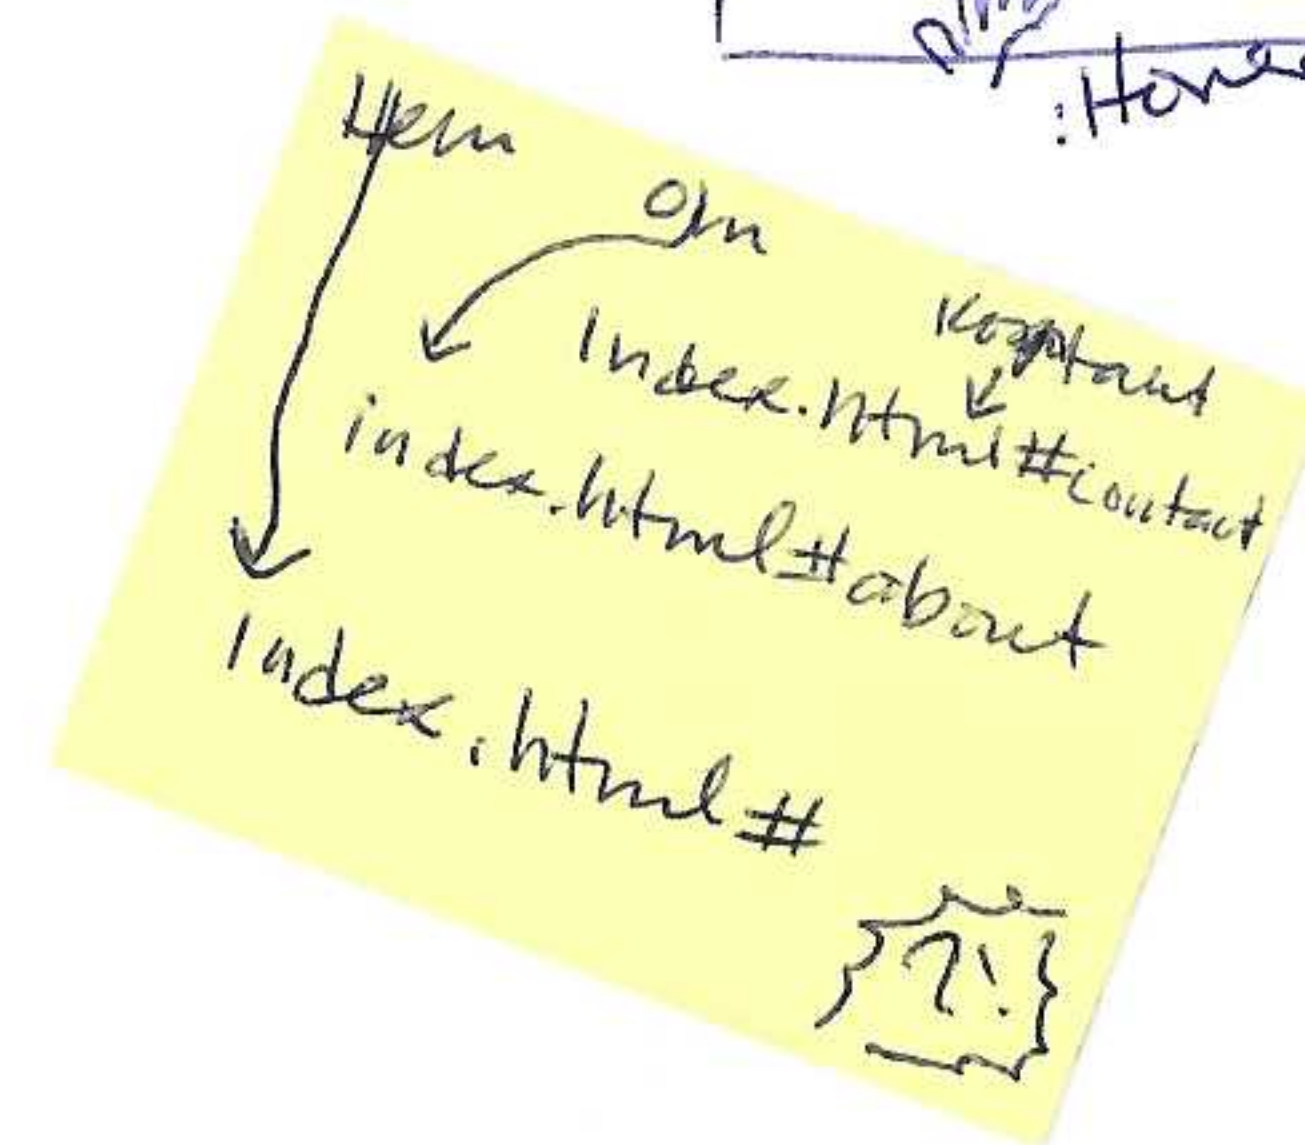 Hem
Om
Kontakt
Index.html#contact
index.html#about
Index.html#
?!